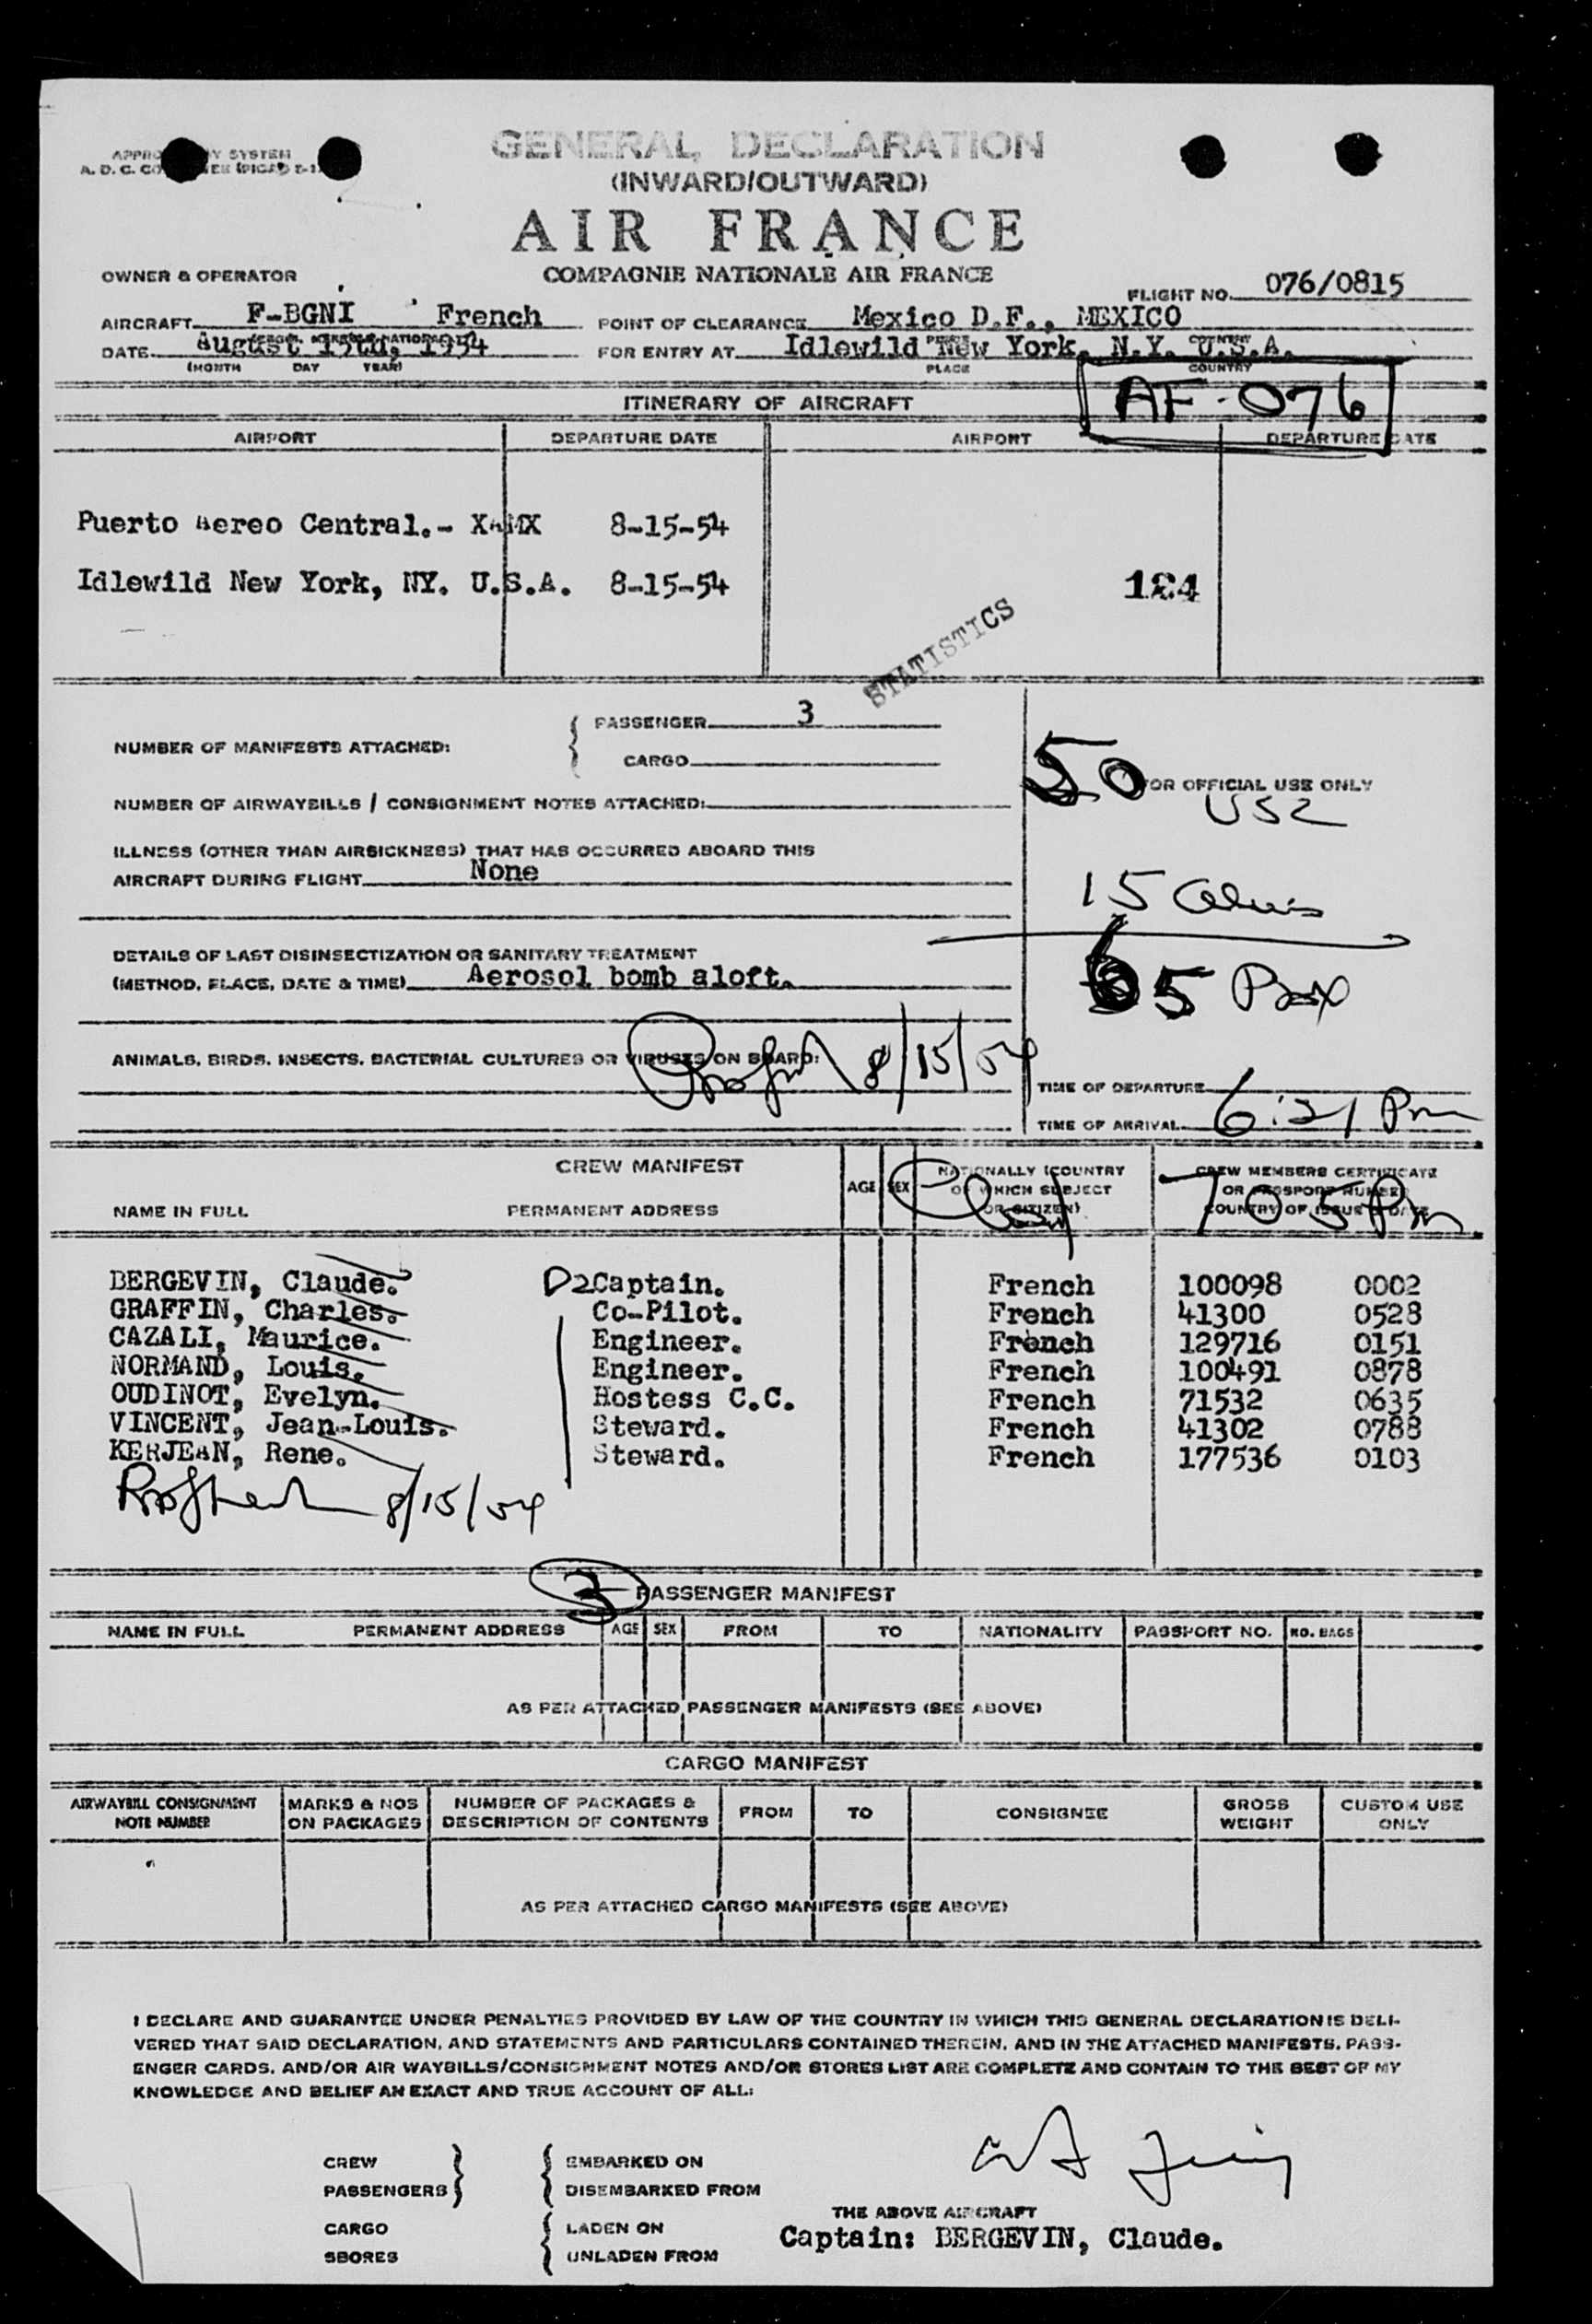 GENERAL DECLARATION
(INWARD/OUTWARD)
AIR FRANCE
COMPAGNIE NATIONALE AIR FRANCE
OWNER & OPERATOR
FLIGHT NO. 076/0815
AIRCRAFT F-BGNI French POINT OF CLEARANCE Mexico D.F., MEXICO
DATE August 15th, 1954 FOR ENTRY AT Idlewild New York, N.Y. U.S.A.
(MONTH DAY YEAR) PLACE COUNTRY
AF-076
ITINERARY OF AIRCRAFT
AIRPORT DEPARTURE DATE AIRPORT DEPARTURE DATE
Puerto Aereo Central.- XAMX 8-15-54
Idlewild New York, NY. U.S.A. 8-15-54 124
STATISTICS
NUMBER OF MANIFESTS ATTACHED: PASSENGER 3
CARGO
50 FOR OFFICIAL USE ONLY
NUMBER OF AIRWAYBILLS / CONSIGNMENT NOTES ATTACHED:
ILLNESS (OTHER THAN AIRSICKNESS) THAT HAS OCCURRED ABOARD THIS
AIRCRAFT DURING FLIGHT None
15
DETAILS OF LAST DISINSECTIZATION OR SANITARY TREATMENT
(METHOD, PLACE, DATE & TIME) Aerosol bomb aloft.
65 Pax
ANIMALS, BIRDS, INSECTS, BACTERIAL CULTURES OR VIRUSES ON BOARD: 8/15/54
TIME OF DEPARTURE
TIME OF ARRIVAL 6:21 Pm
CREW MANIFEST
NAME IN FULL PERMANENT ADDRESS AGE SEX NATIONALLY (COUNTRY OF WHICH SUBJECT OR CITIZEN) CREW MEMBERS CERTIFICATE OR PASSPORT NUMBER COUNTRY OF ISSUE & DATE
705 Pm
BERGEVIN, Claude. D2 Captain. French 100098 0002
GRAFFIN, Charles. Co-Pilot. French 41300 0528
CAZALI, Maurice. Engineer. French 129716 0151
NORMAND, Louis. Engineer. French 100491 0878
OUDINOT, Evelyn. Hostess C.C. French 71532 0635
VINCENT, Jean-Louis. Steward. French 41302 0788
KERJEAN, Rene. Steward. French 177536 0103
8/15/54
3 PASSENGER MANIFEST
NAME IN FULL PERMANENT ADDRESS AGE SEX FROM TO NATIONALITY PASSPORT NO. NO. BAGS
AS PER ATTACHED PASSENGER MANIFESTS (SEE ABOVE)
CARGO MANIFEST
AIRWAYBILL CONSIGNMENT NOTE NUMBER MARKS & NOS ON PACKAGES NUMBER OF PACKAGES & DESCRIPTION OF CONTENTS FROM TO CONSIGNEE GROSS WEIGHT CUSTOM USE ONLY
AS PER ATTACHED CARGO MANIFESTS (SEE ABOVE)
I DECLARE AND GUARANTEE UNDER PENALTIES PROVIDED BY LAW OF THE COUNTRY IN WHICH THIS GENERAL DECLARATION IS DELI-
VERED THAT SAID DECLARATION, AND STATEMENTS AND PARTICULARS CONTAINED THEREIN, AND IN THE ATTACHED MANIFESTS, PASS-
ENGER CARDS, AND/OR AIR WAYBILLS/CONSIGNMENT NOTES AND/OR STORES LIST ARE COMPLETE AND CONTAIN TO THE BEST OF MY
KNOWLEDGE AND BELIEF AN EXACT AND TRUE ACCOUNT OF ALL:
CREW EMBARKED ON
PASSENGERS DISEMBARKED FROM
THE ABOVE AIRCRAFT
CARGO LADEN ON
Captain: BERGEVIN, Claude.
SBORES UNLADEN FROM